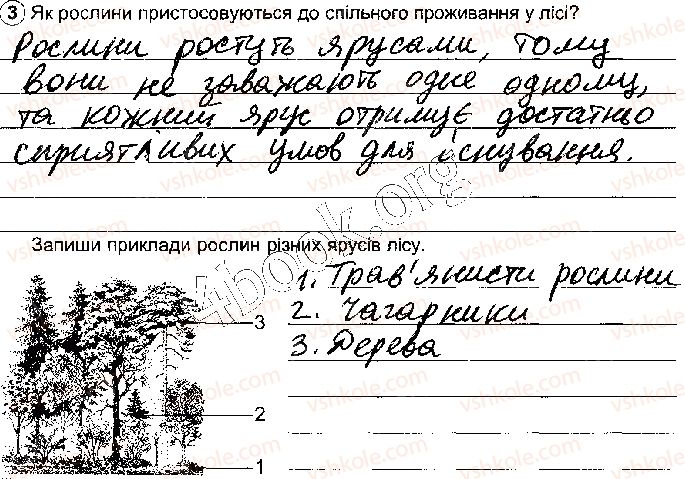 3 Як рослини пристосовуються до спільного проживання у лісі?
Рослини ростуть ярусами, тому
вони не заважають одне одному,
та кожний ярус отримує достатньо
сприятливих умов для існування.
Запиши приклади рослин різних ярусів лісу.
1. Трав'янисти рослини
2. Чагарники
3. Дерева
3
2
1
4book.org
vshkole.com